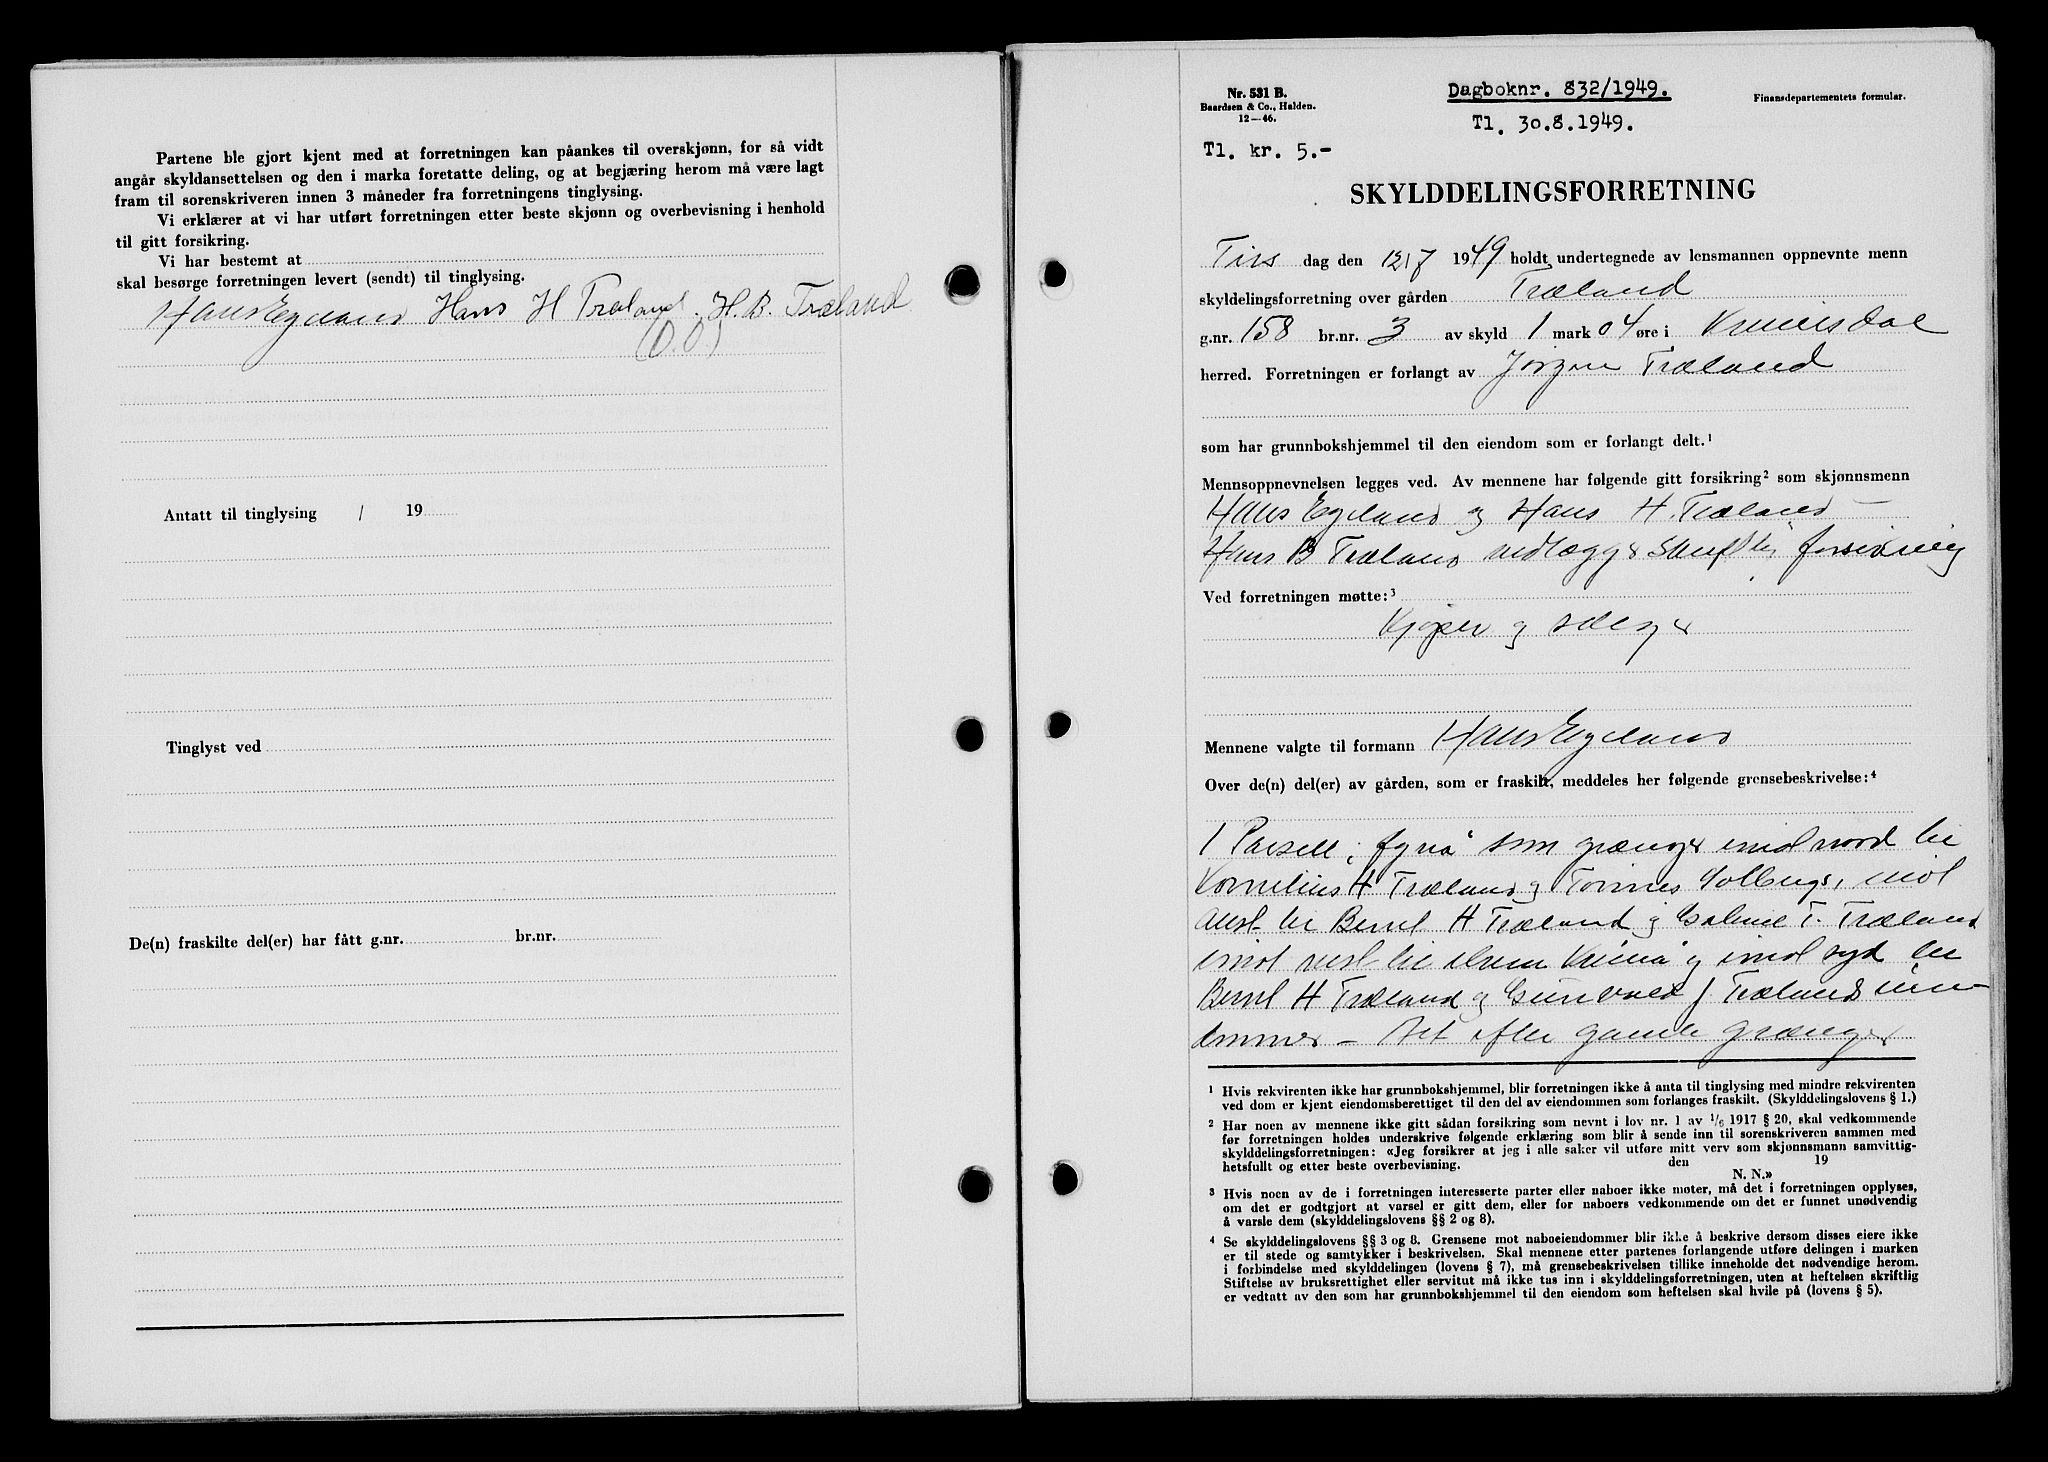 Partene ble gjort kjent med at forretningen kan påankes til overskjønn, for så vidt
angår skyldansettelsen og den i marka foretatte deling, og at begjæring herom må være lagt
fram til sorenskriveren innen 3 måneder fra forretningens tinglysing.
Vi erklærer at vi har utført forretningen etter beste skjønn og overbevisning i henhold
til gitt forsikring.
Vi har bestemt at
skal besørge forretningen levert (sendt) til tinglysing.
Hans Egeland Hans H Træland. H. B. Træland
(O.O.)
Antatt til tinglysing / 19
Tinglyst ved
De(n) fraskilte del(er) har fått g.nr. br.nr.
Nr. 531 B.
Baardsen & Co., Halden.
12—46.
Dagboknr. 832/1949.
Tl. 30.8.1949.
Finansdepartementets formular.
Tl. kr. 5.-
SKYLDDELINGSFORRETNING
Tirs dag den 12/7 1949 holdt undertegnede av lensmannen oppnevnte menn
skyldelingsforretning over gården Træland
g.nr. 158 br.nr. 3 av skyld 1 mark 04 øre i Kvinesdal
herred. Forretningen er forlangt av Jørgen Træland
som har grunnbokshjemmel til den eiendom som er forlangt delt.¹
Mennsoppnevnelsen legges ved. Av mennene har følgende gitt forsikring² som skjønnsmenn
Hans Egeland og Hans H. Træland —
Hans B Træland vedlægger skriftlig forsikring
Ved forretningen møtte:³
Kjøper og sælger
Mennene valgte til formann Hans Egeland
Over de(n) del(er) av gården, som er fraskilt, meddeles her følgende grensebeskrivelse:⁴
1 Parsell, som grænser imot nord til
Kornelius H Træland og Tønnes Solbergs, imot
aust til Bernt H Træland og T. Træland
imot vest til og imot syd til
Bernt H Træland og Gunvald J. Trælands eien-
dommer — Alt efter gamle grænser
¹ Hvis rekvirenten ikke har grunnbokshjemmel, blir forretningen ikke å anta til tinglysing med mindre rekvirenten
ved dom er kjent eiendomsberettiget til den del av eiendommen som forlanges fraskilt. (Skylddelingslovens § 1.)
² Har noen av mennene ikke gitt sådan forsikring som nevnt i lov nr. 1 av ¹/₆ 1917 § 20, skal vedkommende
før forretningen holdes underskrive følgende erklæring som blir å sende inn til sorenskriveren sammen med
skylddelingsforretningen: «Jeg forsikrer at jeg i alle saker vil utføre mitt verv som skjønnsmann samvittig-
hetsfullt og etter beste overbevisning. den 19
N. N.»
³ Hvis noen av de i forretningen interesserte parter eller naboer ikke møter, må det i forretningen opplyses,
om det er godtgjort at varsel er gitt dem, eller for naboers vedkommende om det er funnet unødvendig
å varsle dem (skylddelingslovens §§ 2 og 8).
⁴ Se skylddelingslovens §§ 3 og 8. Grensene mot naboeiendommer blir ikke å beskrive dersom disses eiere ikke
er til stede og samtykker i beskrivelsen. Skal mennene etter partenes forlangende utføre delingen i marken
i forbindelse med skylddelingen (lovens § 7), må grensebeskrivelsen tillike inneholde det nødvendige herom.
Stiftelse av bruksrettighet eller servitut må ikke tas inn i skylddelingsforretningen, uten at heftelsen skriftlig
er vedtatt av den som har grunnbokshjemmel til den eiendom som heftelsen skal hvile på (lovens § 5).